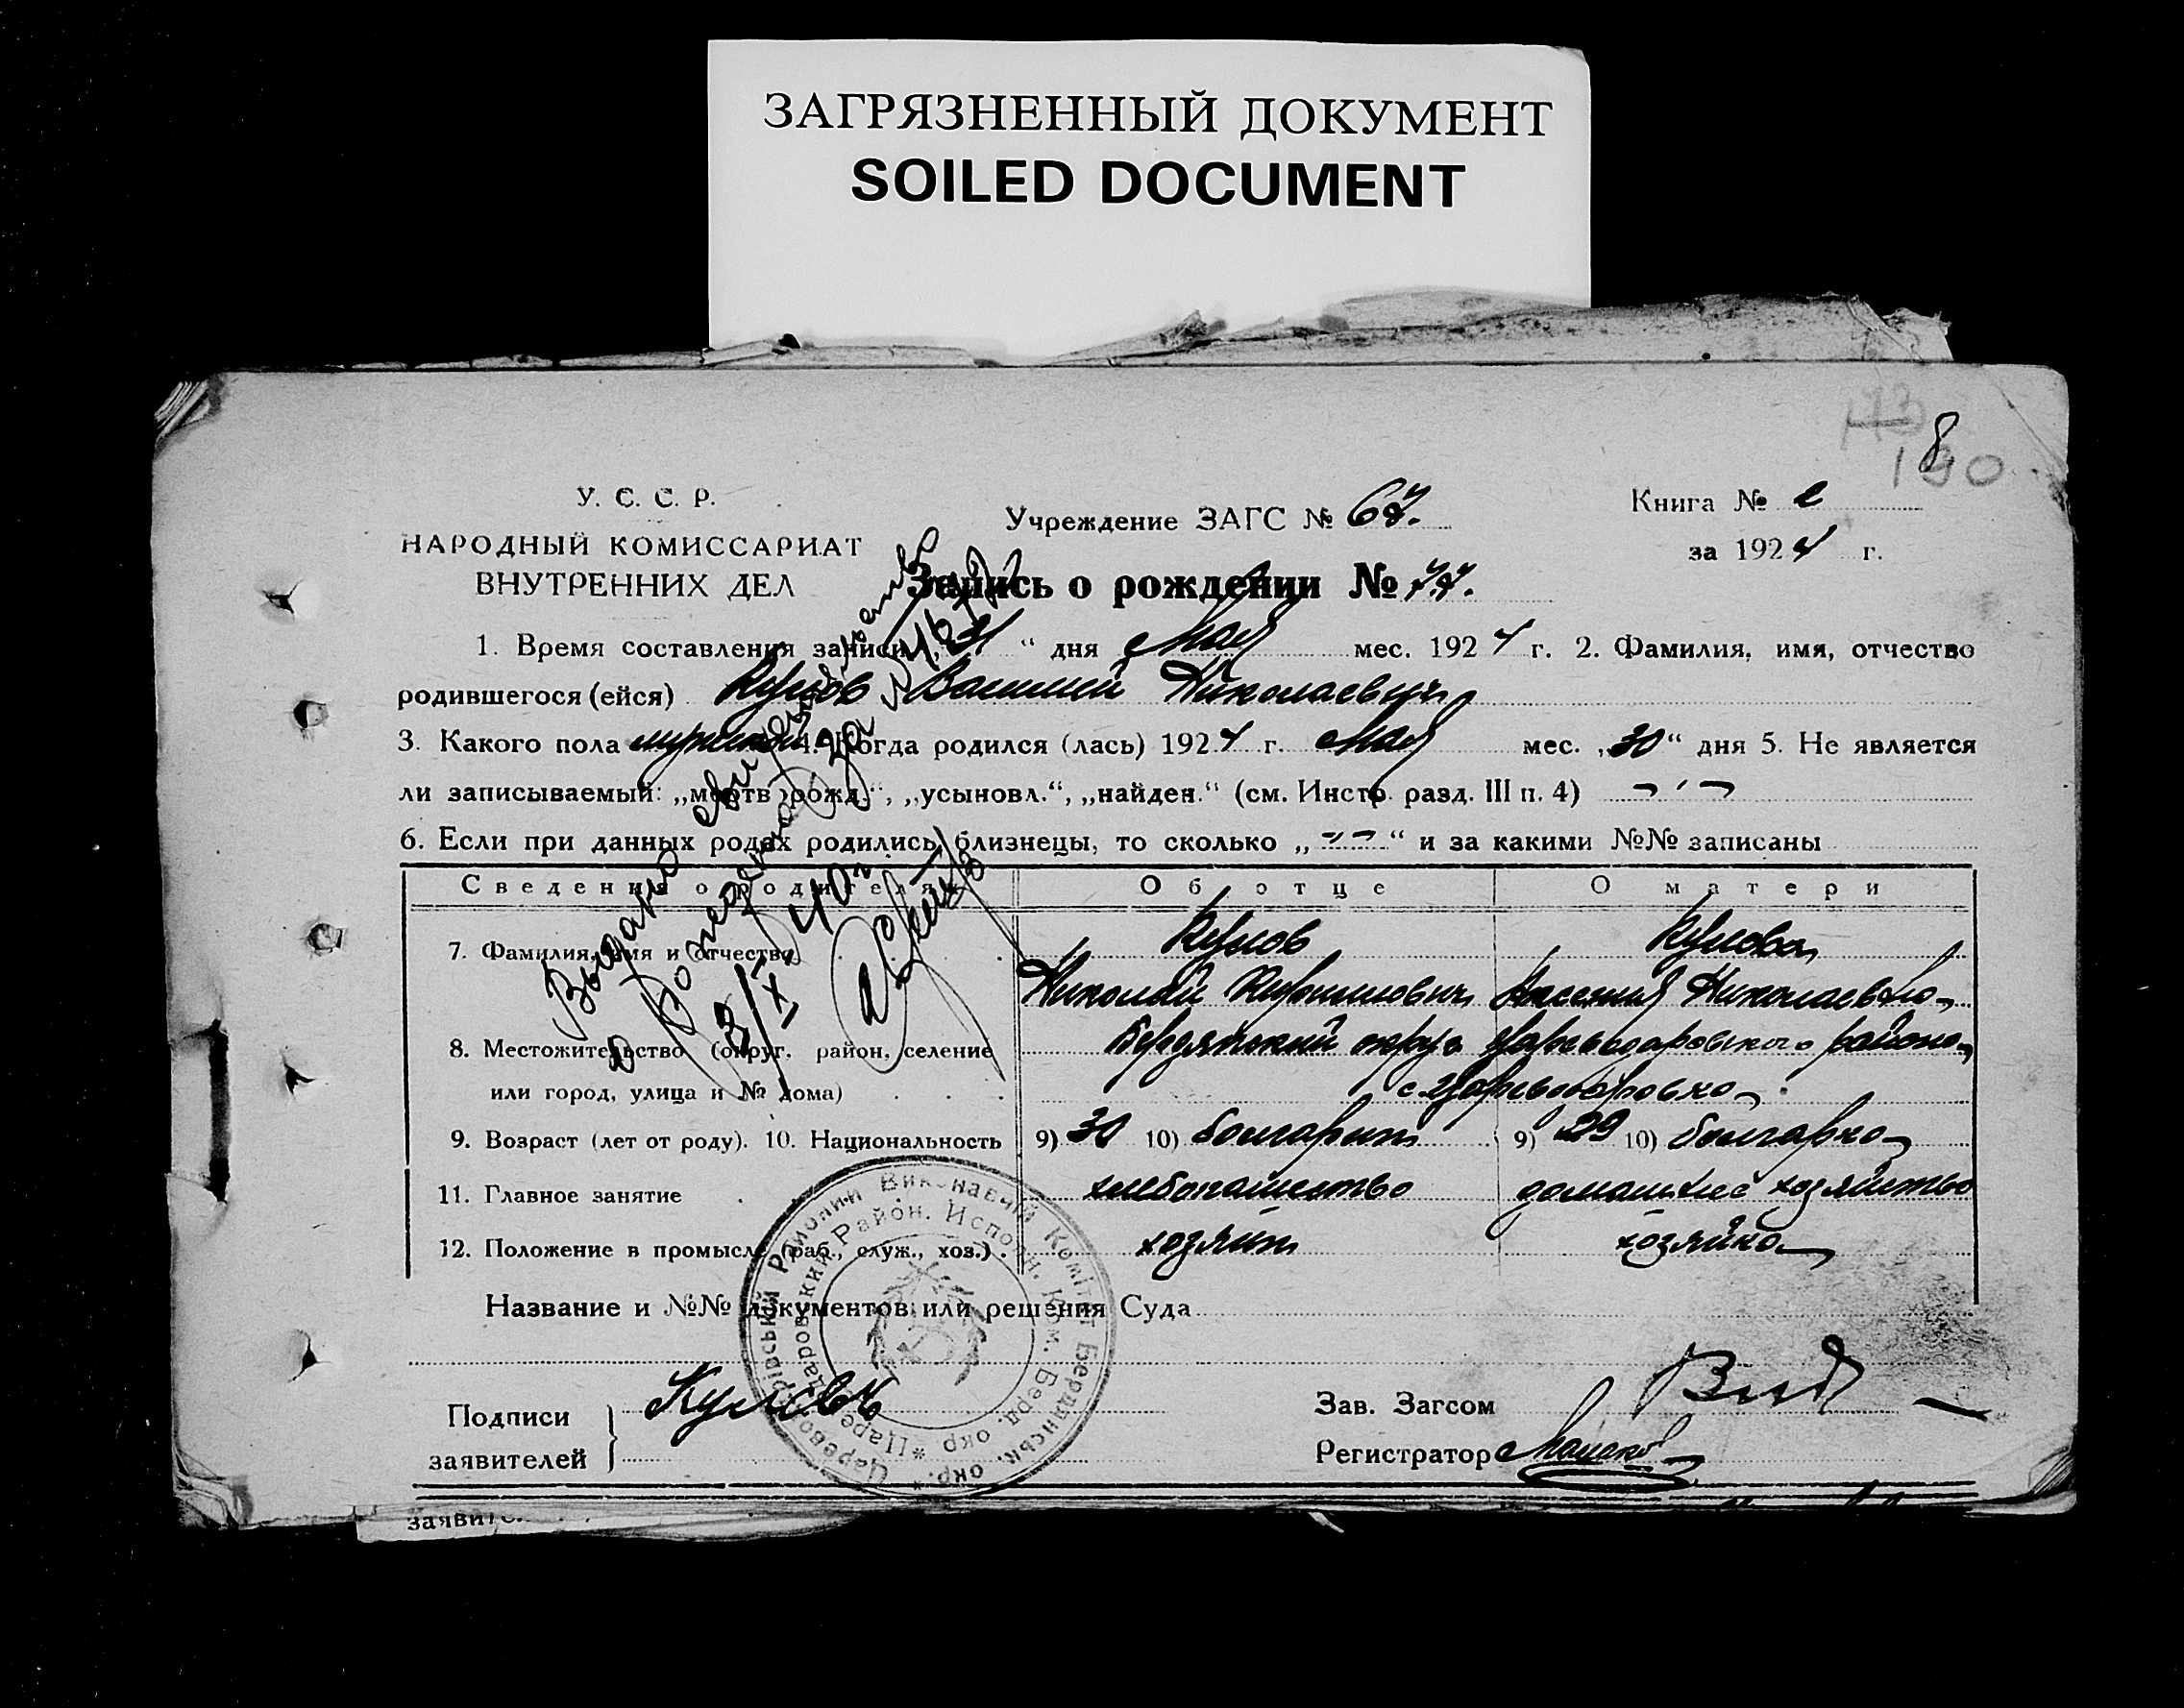 ЗАГРЯЗНЕННЫЙ ДОКУМЕНТ
SOILED DOCUMENT
8
У. С. С. Р.
НАРОДНЫЙ КОМИССАРИАТ
ВНУТРЕННИХ ДЕЛ
Учреждение ЗАГС № 67.
Книга №
за 1924 г.
Запись о рождении № 77.
1. Время составления записи „31“ дня Мая мес. 1924 г. 2. Фамилия, имя, отчество
родившегося (ейся) Кулов Василий Николаевич
3. Какого пола мужской 4. Когда родился (лась) 1924 г. Мая мес. „30“ дня 5. Не является
ли записываемый: „мертв рожд.“, „усыновл.“, „найден.“ (см. Инстр. разд. III п. 4)
6. Если при данных родах родились близнецы, то сколько „ “ и за какими №№ записаны
Сведения о родителях Об отце О матери
7. Фамилия, имя и отчество Кулов Кулова
Николай Николаевна
8. Местожительство (округ, район, селение Бердянский округ Цареводаровского района
или город, улица и № дома) с. Цареводаровка
9. Возраст (лет от роду). 10. Национальность 9) 30 10) болгарин 9) 29 10) болгарка
11. Главное занятие хлебопашество домашнее хозяйство
12. Положение в промысле (раб., служ., хоз.) хозяин хозяйка
Название и №№ документов или решения Суда
Выдано свидетельство
о рождении за №
3/IX 40 г.
Подписи
заявителей
Кулов
Зав. Загсом
Регистратор
Районний Виконавчий Комітет Бердянськ. окр.
Царедаровский Район. Исполн. Ком. Берд. окр
заявит